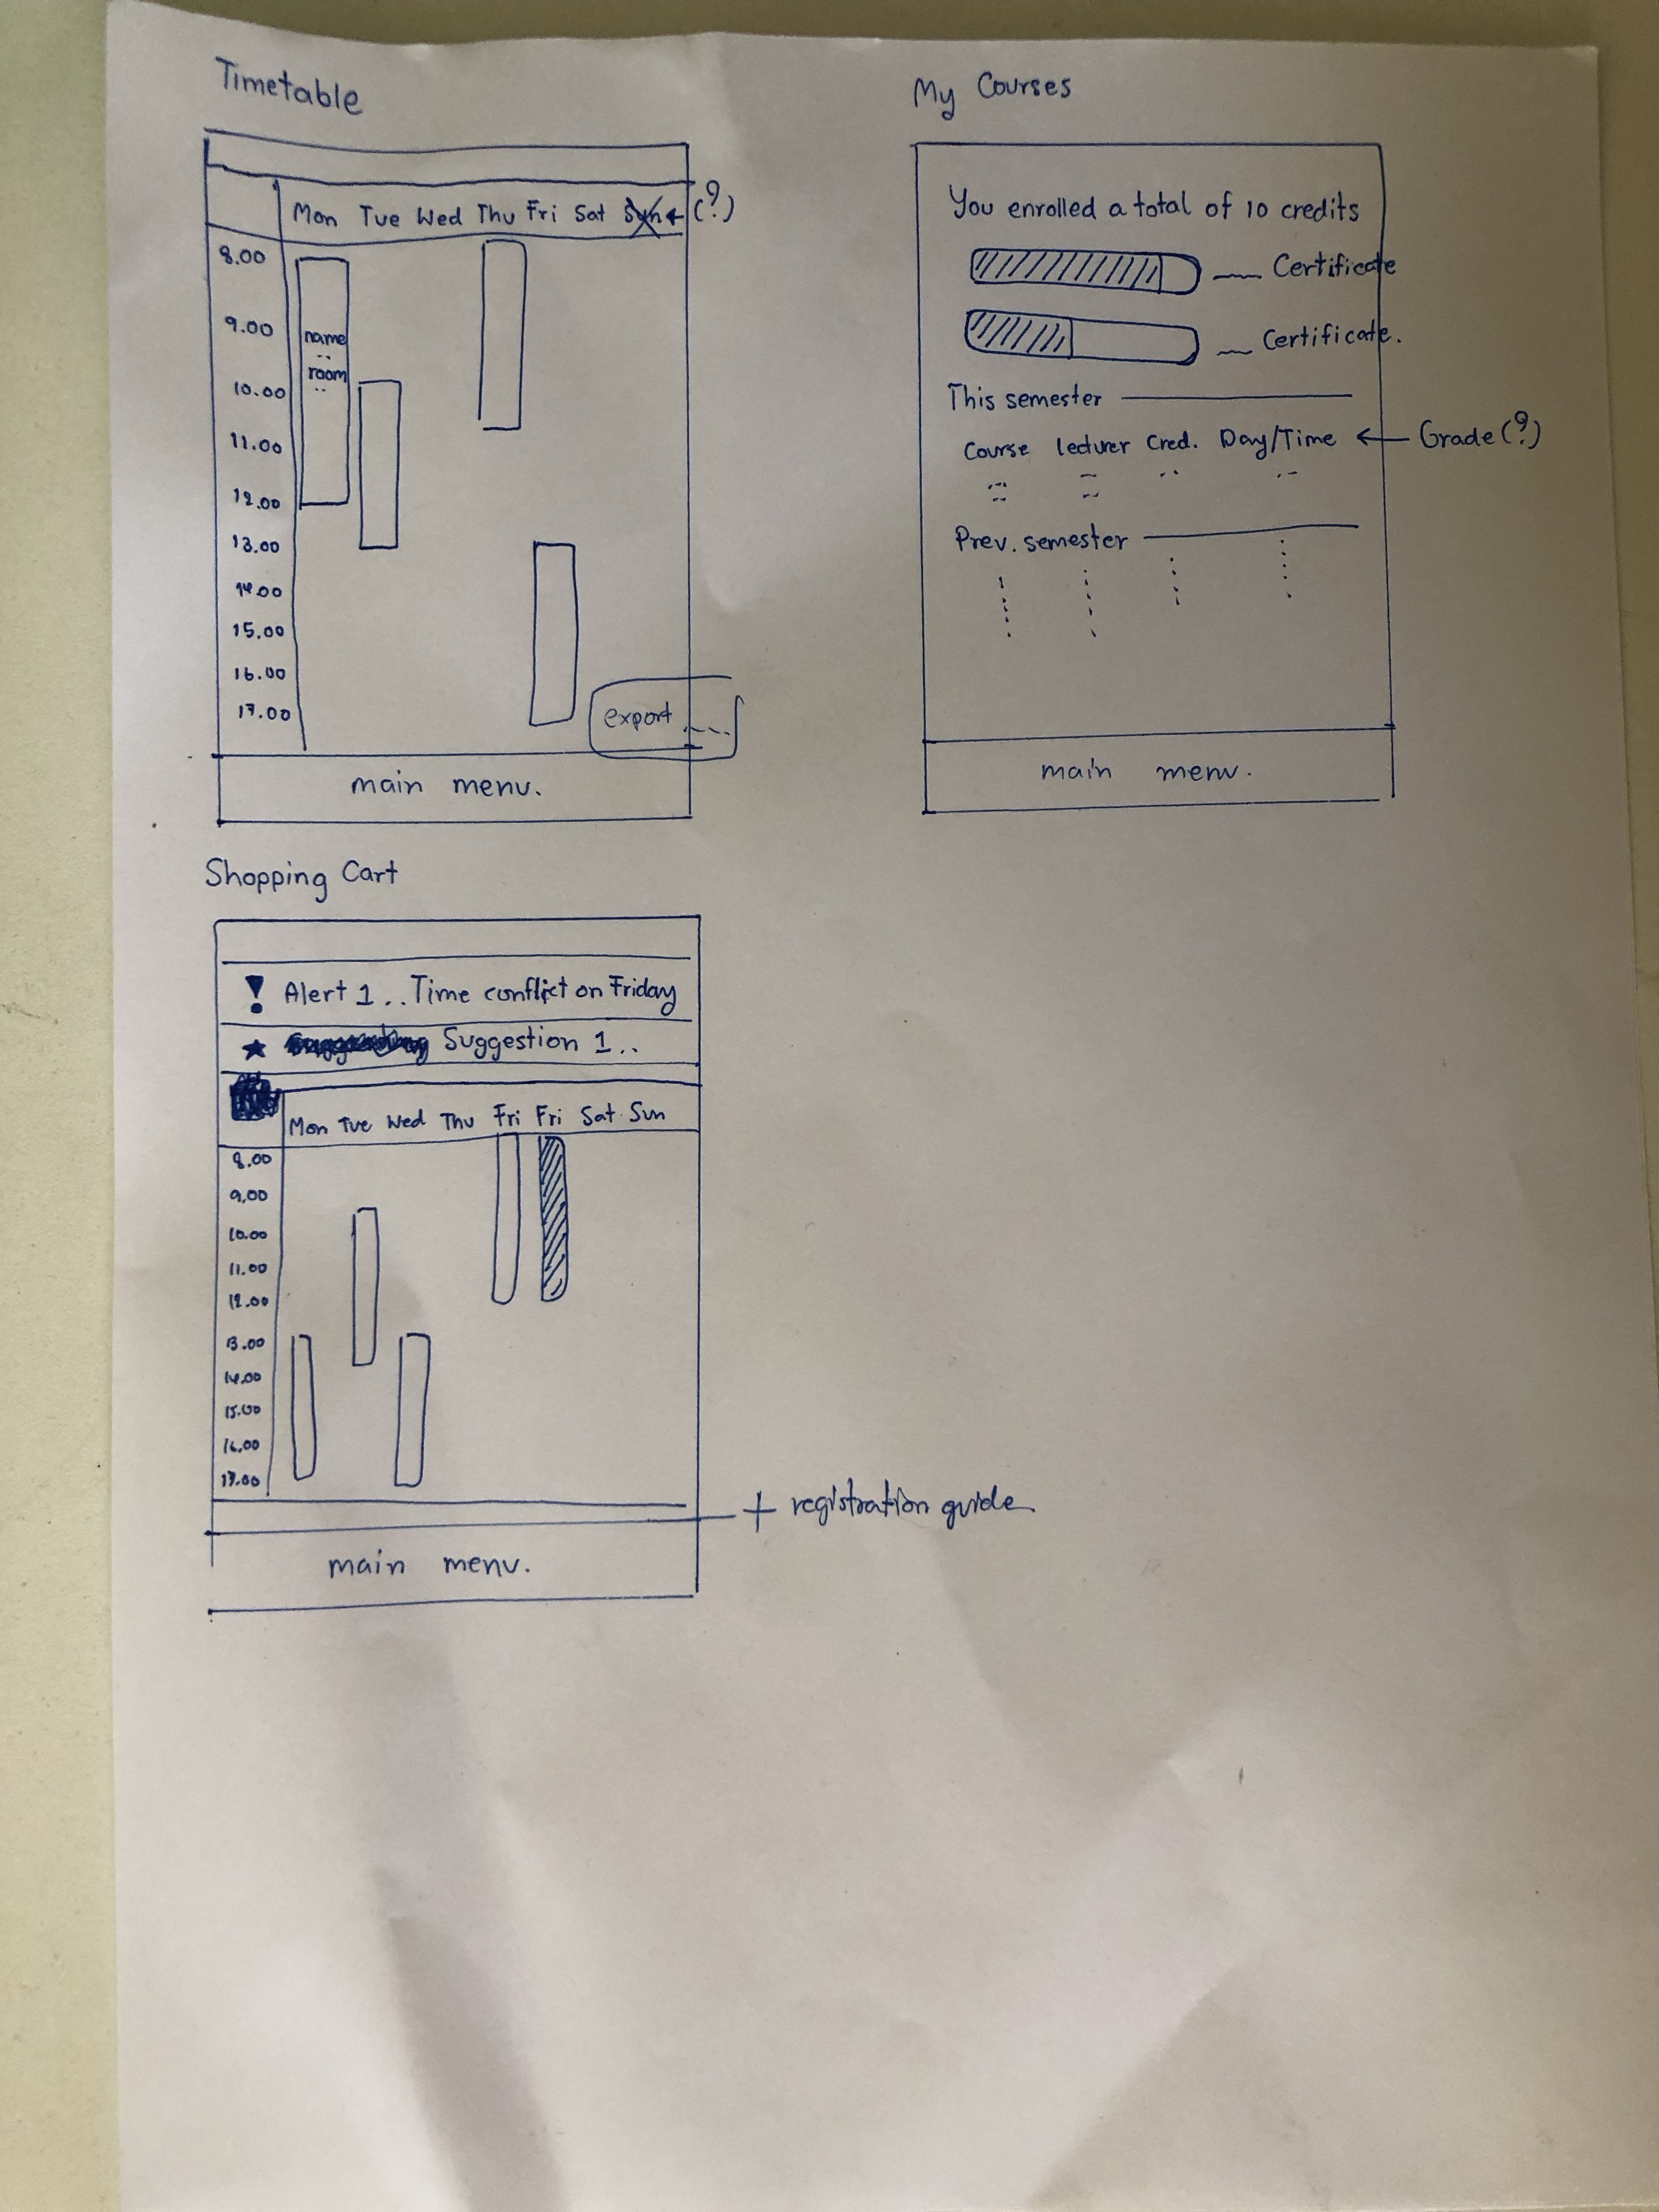 Timetable
Mon Tue Wed Thu Fri Sat Sun (?)
8.00
9.00
name
room
10.00
11.00
12.00
13.00
14.00
15.00
16.00
17.00
export
main menu.
My Courses
You enrolled a total of 10 credits
Certificate
Certificate.
This semester
Course lecturer Cred. Day/Time Grade(?)
Prev. semester
main menu.
Shopping Cart
! Alert 1.. Time conflict on Friday
Suggestion 1..
Mon Tue Wed Thu Fri Fri Sat Sun
8.00
9.00
10.00
11.00
12.00
13.00
14.00
15.00
16.00
17.00
+ registration guide
main menu.